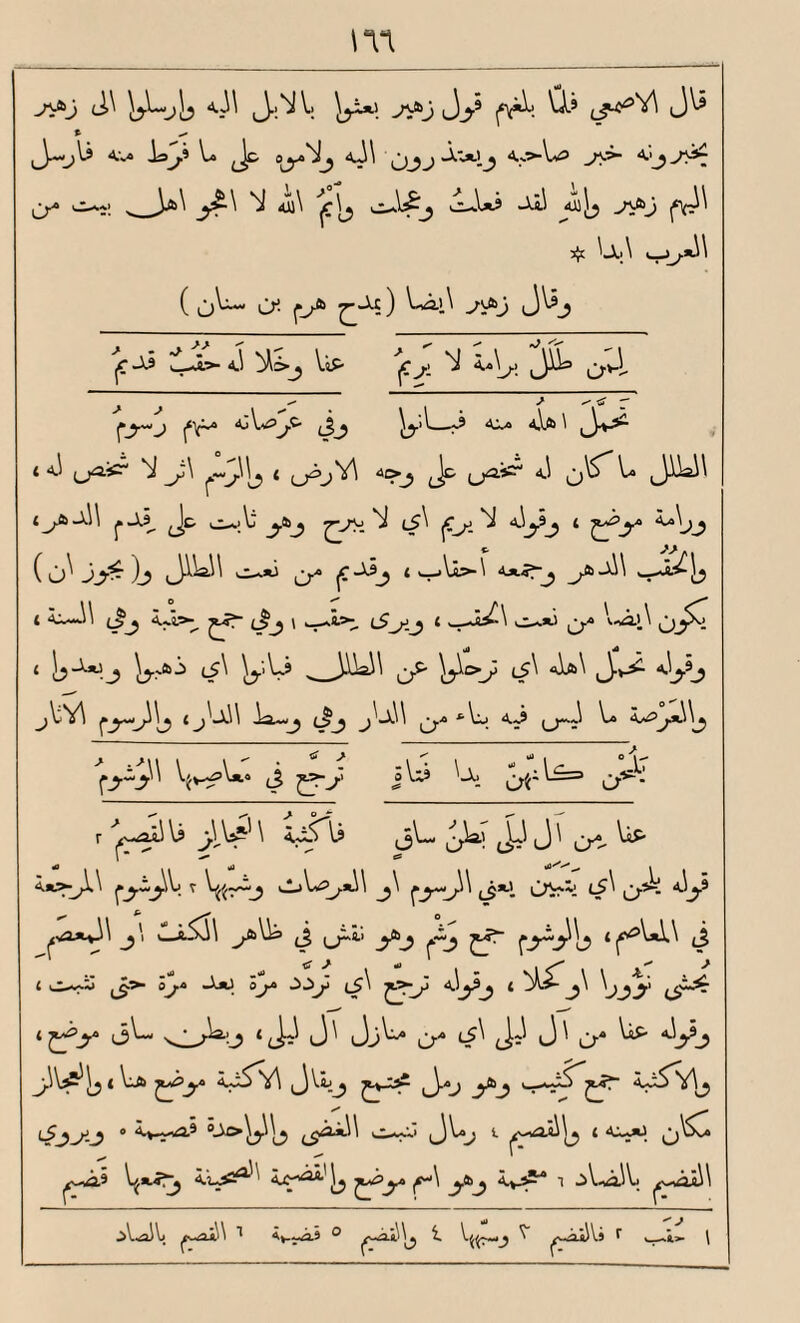 ١٦٦
قال الاصمعي فلما بلغهم قول زهير بعثوا بالابل اليه وارسلوا الى زهير
يخبرونه خبر صاحبه ويعتذرون اليه ولاموه على ما فرط منه فارسل
اليهم زهير والله لقد فعلت وعجلت وايم الله لا اهجو اهل بيت من
العرب ابدا *
وقال زهير ايضا (يمدح هرم بن سنان)
لِمَن طَلَلٌ برامةَ لا يَرِيمُ عفا وخلا له حُقُبٌ قديمُ
تَحَمَّلَ اهلُه منه فبانوا وفي عَرَصاته منهم رسومُ
الطلل ما كان له شخص على وجه الارض ، والرَسْم اثر لا شخص له ،
ورامة موضع ، وقوله لا يريم اي لا يبرح وهو ثابت على قِدَم الدهر ،
والحُقُب الدهر وجمعه احقاب ، وقديم من نعت الطلل و(يجوز ان)
يكون ايضا من نعت الحقب ، ويروى حِقَب ١ وهي جمع حِقْبة وهي السنة ،
وقوله تحمل اهله اي ترحلوا عن الطلل فبانوا اي ذهبوا وبعدوا ،
والعرصة ما ليس فيه بناء من الدار وهي وسط الدار ، والرسوم الآثار
يَلُحْنَ كانّهنّ يدا فتاةٍ تُرَجَّعُ في معاصمها الوُشُومُ
عفا مِن آل ليلى بطنُ ساقٍ فأكْثِبةُ العَجالِزِ فالقَصيمُ ٢
قوله يلحن اي يتبيّن يعني الرسوم او العرصات وشبهها ٣ بالوشوم المرجّعة
في المعصم ، والوشوم جمع وشم وهو نقش في ظاهر الكفّ او المعصم
يُحشى نؤورا او كحلا ، وقوله تُرَجَّع اي تردد مرّة بعد مرّة حتى تثبت ،
وقوله عفا من آل ليلى اي من منازل آل ليلى ، وبطن ساق موضع ،
والاكثبة جمع كثيب وهو رمل مجتمع ويقال الاكثبة موضع هنا ، والعجالز
مكان بعينه ، والقصيم ٤ رمال تنبت الغضى والواحدة قصيمة ٥ ويروى
القضيم بالضاد ٦ معجمة وهو اسم موضع والقضيمة الصحيفة وجمعها قضيم
١ حقب ٢ فالقضيم ٣ وسمها ٤ والقضيم ٥ قضيمة ٦ القصيم بالصاد